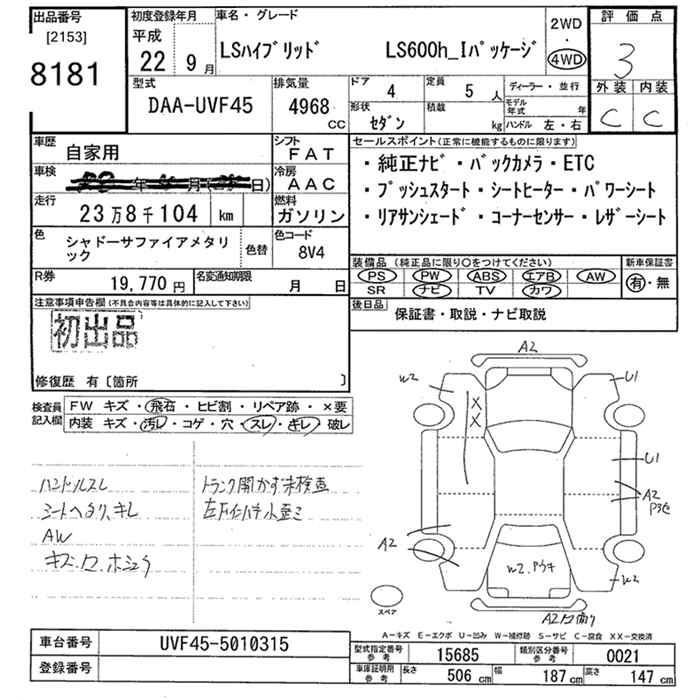 出品番号
[2153]
8181
初度登録年月
平成
22 9月
車名・グレード
LSハイブリッド LS600h_Iパッケージ
2WD
・
4WD
評価点
3
外装 内装
C C
型式
DAA-UVF45
排気量
4968
CC
ドア
4
定員
5人
ディーラー・並行
形状
セダン
積載
kg
モデル年式 年
ハンドル 左・右
車歴
自家用
シフト
FAT
車検
冷房
AAC
走行
23万8千104 km
燃料
ガソリン
色
シャドーサファイアメタリック
色替
色コード
8V4
R券
19,770円
名変通知期限
月 日
セールスポイント(正常に機能するものに限ります)
・純正ナビ・バックカメラ・ETC
・プッシュスタート・シートヒーター・パワーシート
・リアサンシェード・コーナーセンサー・レザーシート
装備品(純正品に限り〇をつけてください)
PS PW ABS エアB AW
SR ナビ TV カワ
新車保証書
有・無
後日品
保証書・取説・ナビ取説
注意事項申告欄(不具合内容等は具体的に記入して下さい)
初出品
修復歴 有〔箇所 〕
検査員記入欄
FW キズ・飛石・ヒビ割・リペア跡・×要
内装 キズ・汚レ・コゲ・穴・スレ・キレ・破レ
ハンドルスレ
シートヘタリ、キレ
AW
トランク開かず未検査
A2
W2
U1
XX
U1
A2
A2
W2
スペア
A-キズ E-エクボ U-凹み W-補修跡 S-サビ C-腐食 XX-交換済
車台番号
UVF45-5010315
登録番号
型式指定番号 参考
15685
類別区分番号 参考
0021
車庫証明用 参考
長さ 506 cm 幅 187 cm 高さ 147 cm